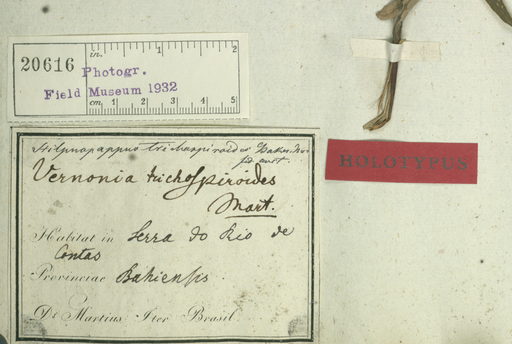 in. 1 2
20616
Photogr.
Field Museum 1932
cm 1 2 3 4 5
HOLOTYPUS
Stilpnopappus trichospiroides
Vernonia trichospiroides
Mart.
Habitat in Serra do Rio de
Contas
Provinciae Bahiensis.
Dr. Martius Iter Brasil.